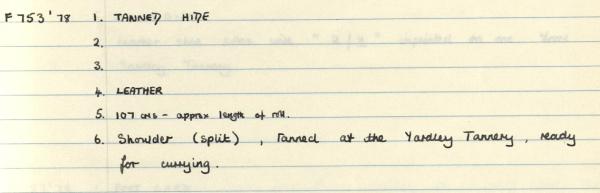 F 753 '78 1. TANNED HIDE
2.
3.
4. LEATHER
5. 107 cms - approx length of roll.
6. Shoulder (split), Tanned at the Yardley Tannery, ready
for currying.